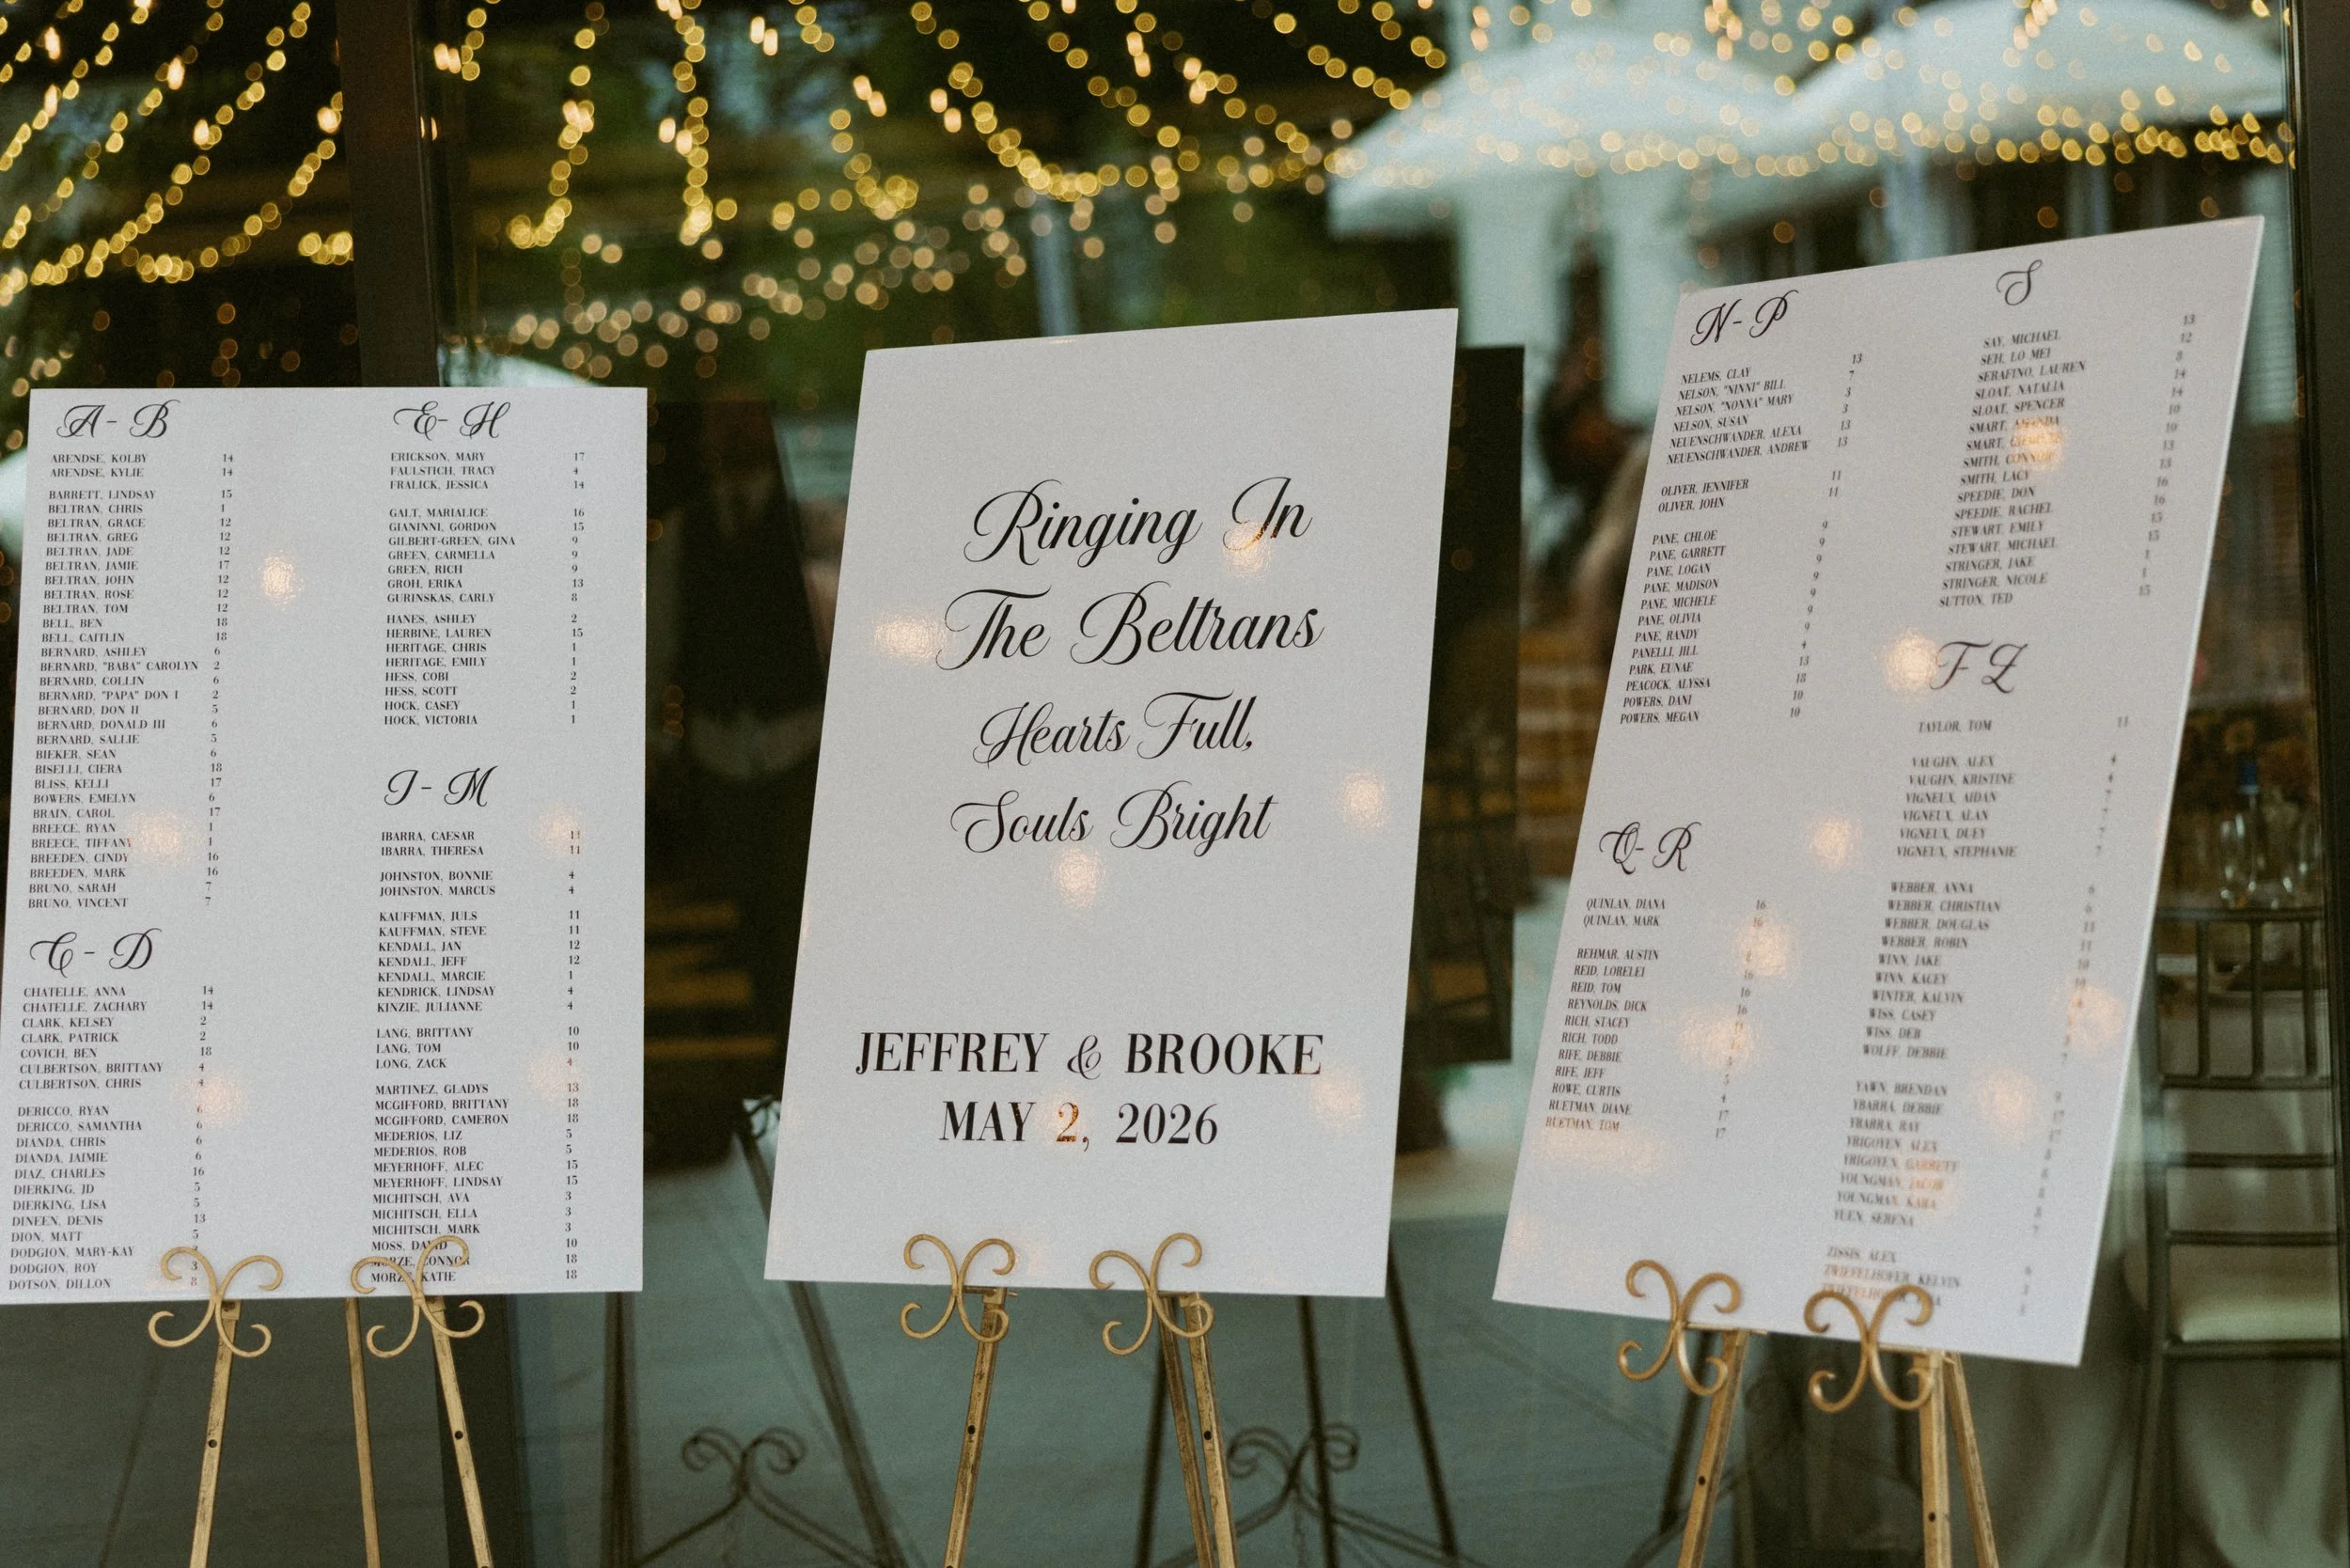 A - B
ARENDSE, KOLBY 14
ARENDSE, KYLIE 14
BARRETT, LINDSAY 15
BELTRAN, CHRIS 1
BELTRAN, GRACE 12
BELTRAN, GREG 12
BELTRAN, JADE 12
BELTRAN, JAMIE 17
BELTRAN, JOHN 12
BELTRAN, ROSE 12
BELTRAN, TOM 12
BELL, BEN 18
BELL, CAITLIN 18
BERNARD, ASHLEY 6
BERNARD, "BABA" CAROLYN 2
BERNARD, COLLIN 6
BERNARD, "PAPA" DON I 2
BERNARD, DON II 5
BERNARD, DONALD III 6
BERNARD, SALLIE 5
BIEKER, SEAN 6
BISELLI, CIERA 18
BLISS, KELLI 17
BOWERS, EMELYN 6
BRAIN, CAROL 17
BREECE, RYAN 1
BREECE, TIFFANY 1
BREEDEN, CINDY 16
BREEDEN, MARK 16
BRUNO, SARAH 7
BRUNO, VINCENT 7
C - D
CHATELLE, ANNA 14
CHATELLE, ZACHARY 14
CLARK, KELSEY 2
CLARK, PATRICK 2
COVICH, BEN 18
CULBERTSON, BRITTANY 4
CULBERTSON, CHRIS 4
DERICCO, RYAN 6
DERICCO, SAMANTHA 6
DIANDA, CHRIS 6
DIANDA, JAIMIE 6
DIAZ, CHARLES 16
DIERKING, JD 5
DIERKING, LISA 5
DINEEN, DENIS 13
DION, MATT 5
DODGION, MARY-KAY
DODGION, ROY 3
DOTSON, DILLON 8
E - H
ERICKSON, MARY 17
FAULSTICH, TRACY 4
FRALICK, JESSICA 14
GALT, MARIALICE 16
GIANINNI, GORDON 15
GILBERT-GREEN, GINA 9
GREEN, CARMELLA 9
GREEN, RICH 9
GROH, ERIKA 13
GURINSKAS, CARLY 8
HANES, ASHLEY 2
HERBINE, LAUREN 15
HERITAGE, CHRIS 1
HERITAGE, EMILY 1
HESS, COBI 2
HESS, SCOTT 2
HOCK, CASEY 1
HOCK, VICTORIA 1
I - M
IBARRA, CAESAR 11
IBARRA, THERESA 11
JOHNSTON, BONNIE 4
JOHNSTON, MARCUS 4
KAUFFMAN, JULS 11
KAUFFMAN, STEVE 11
KENDALL, JAN 12
KENDALL, JEFF 12
KENDALL, MARCIE 1
KENDRICK, LINDSAY 4
KINZIE, JULIANNE 4
LANG, BRITTANY 10
LANG, TOM 10
LONG, ZACK 4
MARTINEZ, GLADYS 13
MCGIFFORD, BRITTANY 18
MCGIFFORD, CAMERON 18
MEDERIOS, LIZ 5
MEDERIOS, ROB 5
MEYERHOFF, ALEC 15
MEYERHOFF, LINDSAY 15
MICHITSCH, AVA 3
MICHITSCH, ELLA 3
MICHITSCH, MARK 3
MOSS, DAVID 10
MORZE, CONNOR 18
MORZE, KATIE 18
Ringing In
The Beltrans
Hearts Full,
Souls Bright
JEFFREY & BROOKE
MAY 2, 2026
N - P
NELEMS, CLAY 13
NELSON, "NINNI" BILL 7
NELSON, "NONNA" MARY 3
NELSON, SUSAN 3
NEUENSCHWANDER, ALEXA 13
NEUENSCHWANDER, ANDREW 13
OLIVER, JENNIFER 11
OLIVER, JOHN 11
PANE, CHLOE 9
PANE, GARRETT 9
PANE, LOGAN 9
PANE, MADISON 9
PANE, MICHELE 9
PANE, OLIVIA 9
PANE, RANDY 9
PANELLI, JILL 4
PARK, EUNAE 13
PEACOCK, ALYSSA 18
POWERS, DANI 10
POWERS, MEGAN 10
Q - R
QUINLAN, DIANA 16
QUINLAN, MARK 16
REHMAR, AUSTIN
REID, LORELEI 16
REID, TOM 16
REYNOLDS, DICK 16
RICH, STACEY
RICH, TODD
RIFE, DEBBIE
RIFE, JEFF 5
ROWE, CURTIS 4
RUETMAN, DIANE 17
RUETMAN, TOM 17
S
SAY, MICHAEL 13
SEH, LO MEI 12
SERAFINO, LAUREN 8
SLOAT, NATALIA 14
SLOAT, SPENCER 14
SMART, AMANDA 10
SMART, 10
SMITH, CONNOR 13
SMITH, LACY 13
SPEEDIE, DON 16
SPEEDIE, RACHEL 16
STEWART, EMILY 15
STEWART, MICHAEL 15
STRINGER, JAKE 1
STRINGER, NICOLE 1
SUTTON, TED 15
T - Z
TAYLOR, TOM 11
VAUGHN, ALEX 4
VAUGHN, KRISTINE 4
VIGNEUX, AIDAN 7
VIGNEUX, ALAN 7
VIGNEUX, DUEY 7
VIGNEUX, STEPHANIE 7
WEBBER, ANNA 6
WEBBER, CHRISTIAN 6
WEBBER, DOUGLAS 11
WEBBER, ROBIN 11
WINN, JAKE 10
WINN, KACEY
WINTER, KALVIN
WISS, CASEY
WISS, DEB
WOLFF, DEBBIE
YAWN, BRENDAN
YBARRA, DEBBIE 17
YBARRA, RAY 17
YRIGOYEN, ALEX
YRIGOYEN, GARRETT
YOUNGMAN, JACOB
YOUNGMAN, KARA
YUEN, SERENA
ZISSIS, ALEX
ZWIEFELHOFER, KELVIN